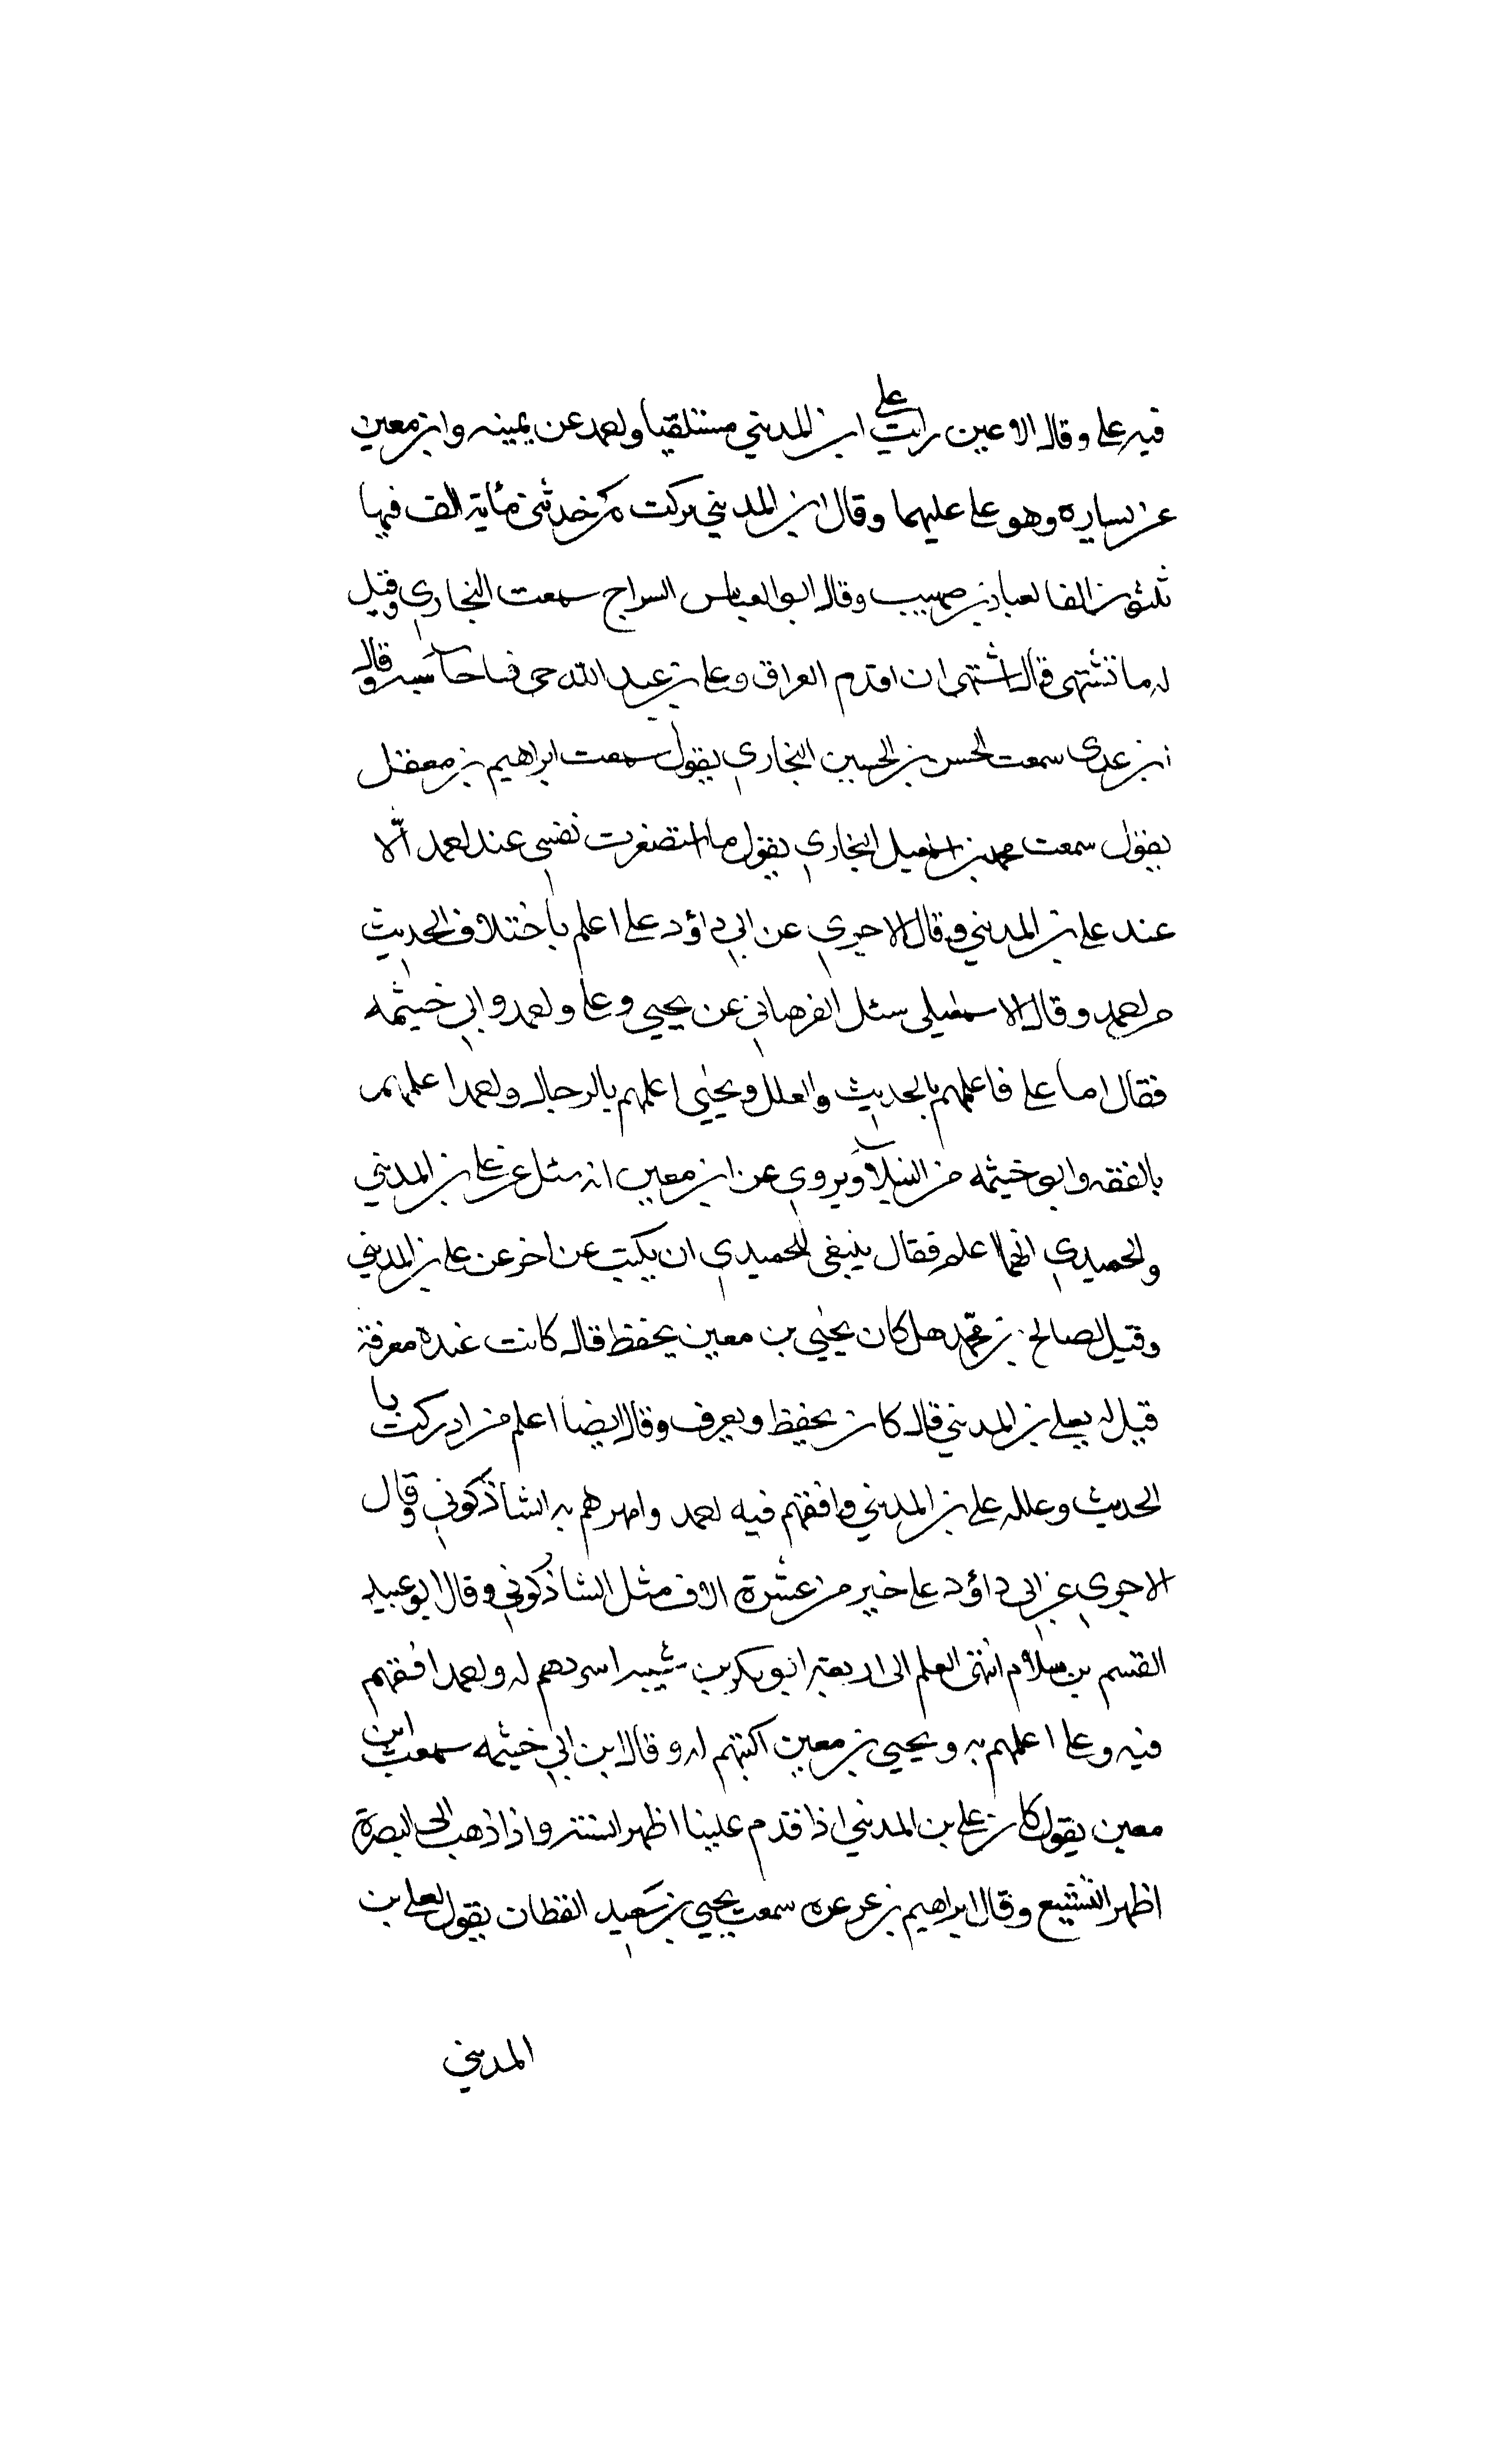 فيه علي وقال الاعين رايت علي ابن المديني مستلقيا واحمد عن يمينه وابن معين
عن يساره وهو علي عليهما وقال ابن المديني تركت من حديثي مأية الف فيها
ثلثون الفا لعباد بن صهيب وقال ابو العباس السراج سمعت البخاري وقيل
له ما تشتهي قال اشتهي ان اقدم العراق وعلي بن عبد الله حي فاجالسه وقال
ابن عدي سمعت الحسن بن الحسين البخاري يقول سمعت ابراهيم بن معقل
يقول سمعت محمد بن اسمعيل البخاري يقول ما استصغرت نفسي عند احمد الّا
عند علي بن المديني وقال الاجري عن ابي داؤد علي اعلم باختلاف الحديث
من احمد وقال الاسمعيلي سئل الفرهياني عن يحيى وعلي واحمد وابي خيثمه
فقال اما علي فاعلمهم بالحديث والعلل ويحيى اعلمهم بالرجال واحمد اعلمهم
بالفقه وابو خيثمه من النبلآ ويروي عن ابن معين انه سئل عن علي بن المديني
والحميدي ايهما اعلم فقال ينبغي للحميدي ان يكتب عن اخر عن علي بن المديني
وقيل لصالح بن محمّد هل كان يحيى بن معين يحفظ قال كانت عنده معرفة
قيل له فعلي بن المديني قال كان يحفظ ويعرف وقال ايضا اعلم من ادركت با
الحديث وعلله علي بن المديني وافقهم فيه احمد وامهرهم به الشاذكوني وقال
الاجري عن ابي داؤد علي خير من عشرة الاف مثل الشاذكوني وقال ابو عبيد
القسم بن سلام انتهى العلم الى اربعة ابو بكر بن شيبه اسردهم له واحمد افقهم
فيه وعلي اعلمهم به ويحيى بن معين اكتبهم له وقال ابن ابي خيثمه سمعت ابن
معين يقول كان علي بن المديني اذا قدم علينا اظهر السنة واذا ذهب الى البصرة
اظهر التشيع وقال ابراهيم بن عرعره سمعت يحيى بن سعيد القطان يقول لعلي بن
المديني